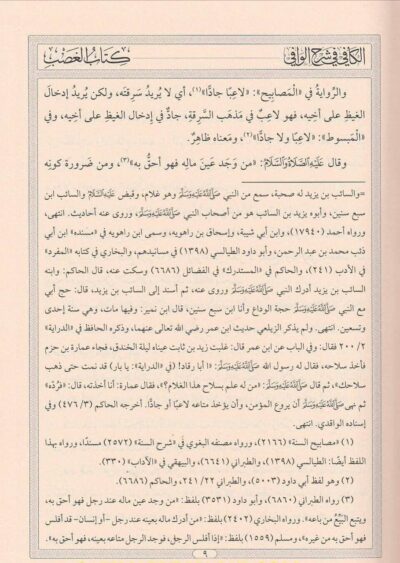 الكافي في شرح الوافي
كتاب الغصب
والرواية في «المصابيح»: «لاعبًا جادًّا»(١)، أي لا يُريدُ سرِقتَه، ولكن يُريدُ إدخالَ
الغيظِ على أخيه، فهو لاعِبٌ في مَذهَبِ السَّرِقةِ، جادٌّ في إدخالِ الغيظِ على أخيه، وفي
«المبسوط»: «لاعبًا ولا جادًّا»(٢)، ومَعناه ظاهِرٌ.
وقال عَلَيْهِ الصَّلَاةُ وَالسَّلَامُ: «من وَجَد عَينَ مالِه فهو أحقُّ به»(٣)، ومن ضَرورة كونِه
=والسائب بن يزيد له صحبة، سمع من النبي ﷺ وهو غلام، وقبض عَلَيْهِ السَّلَامُ والسائب ابن
سبع سنين، وأبوه يزيد بن السائب هو من أصحاب النبي ﷺ، وروى عنه أحاديث. انتهى.
ورواه أحمد (١٧٩٤٠)، وابن أبي شيبة، وإسحاق بن راهويه، وسمى ابن راهويه في «مسنده» ابن أبي
ذئب محمد بن عبد الرحمن، وأبو داود الطيالسي (١٣٩٨) في مسانيدهم، والبخاري في كتابه «المفرد»
في الأدب (٢٤١)، والحاكم في «المستدرك» في الفضائل (٦٦٨٦) وسكت عنه، قال الحاكم: وابنه
السائب بن يزيد أدرك النبي ﷺ وروى عنه، ثم أسند إلى السائب بن يزيد، قال: حج أبي
مع النبي ﷺ حجة الوداع وأنا ابن سبع سنين، قال ابن نمير: وفيها مات، وهي سنة إحدى
وتسعين. انتهى. ولم يذكر الزيلعي حديث ابن عمر رضي الله تعالى عنهما، وذكره الحافظ في «الدراية»
٢/ ٢٠٠ فقال: وفي الباب عن ابن عمر قال: غلبت زيد بن ثابت عيناه ليلة الخندق، فجاء عمارة بن حزم
فأخذ سلاحه، فقال له رسول الله ﷺ: «ا أبا رقاد! (في «الدراية»: يا بار) قد نمت حتى ذهب
سلاحك»، ثم قال ﷺ: «من له علم بسلاح هذا الغلام؟»، فقال عمارة: أنا أخذته، قال: «فرُدَّه»
ثم نهى ﷺ أن يروع المؤمن، وأن يؤخذ متاعه لاعبًا أو جادًّا. أخرجه الحاكم (٣/ ٤٧٦) وفي
إسناده الواقدي. انتهى.
(١) «مصابيح السنة» (٢١٦٦)، ورواه مصنفه البغوي في «شرح السنة» (٢٥٧٢) مسندًا، ورواه بهذا
اللفظ أيضًا: الطيالسي (١٣٩٨)، والطبراني (٦٦٤١)، والبيهقي في «الآداب» (٣٣٠).
(٢) وهو لفظ أبي داود (٥٠٠٣)، والطبراني ٢٢/ ٢٤١، والحاكم (٦٦٨٦).
(٣) رواه الطبراني (٦٨٦٠)، وأبو داود (٣٥٣١) بلفظ: «من وجد عين ماله عند رجل فهو أحق به،
ويتبع البَيِّعُ من باعه». ورواه البخاري (٢٤٠٢) بلفظ: «من أدرك ماله بعينه عند رجل -أو إنسان- قد أفلس
فهو أحق به من غيره»، ومسلم (١٥٥٩) بلفظ: «إذا أفلس الرجل، فوجد الرجل متاعه بعينه، فهو أحق به».
٩